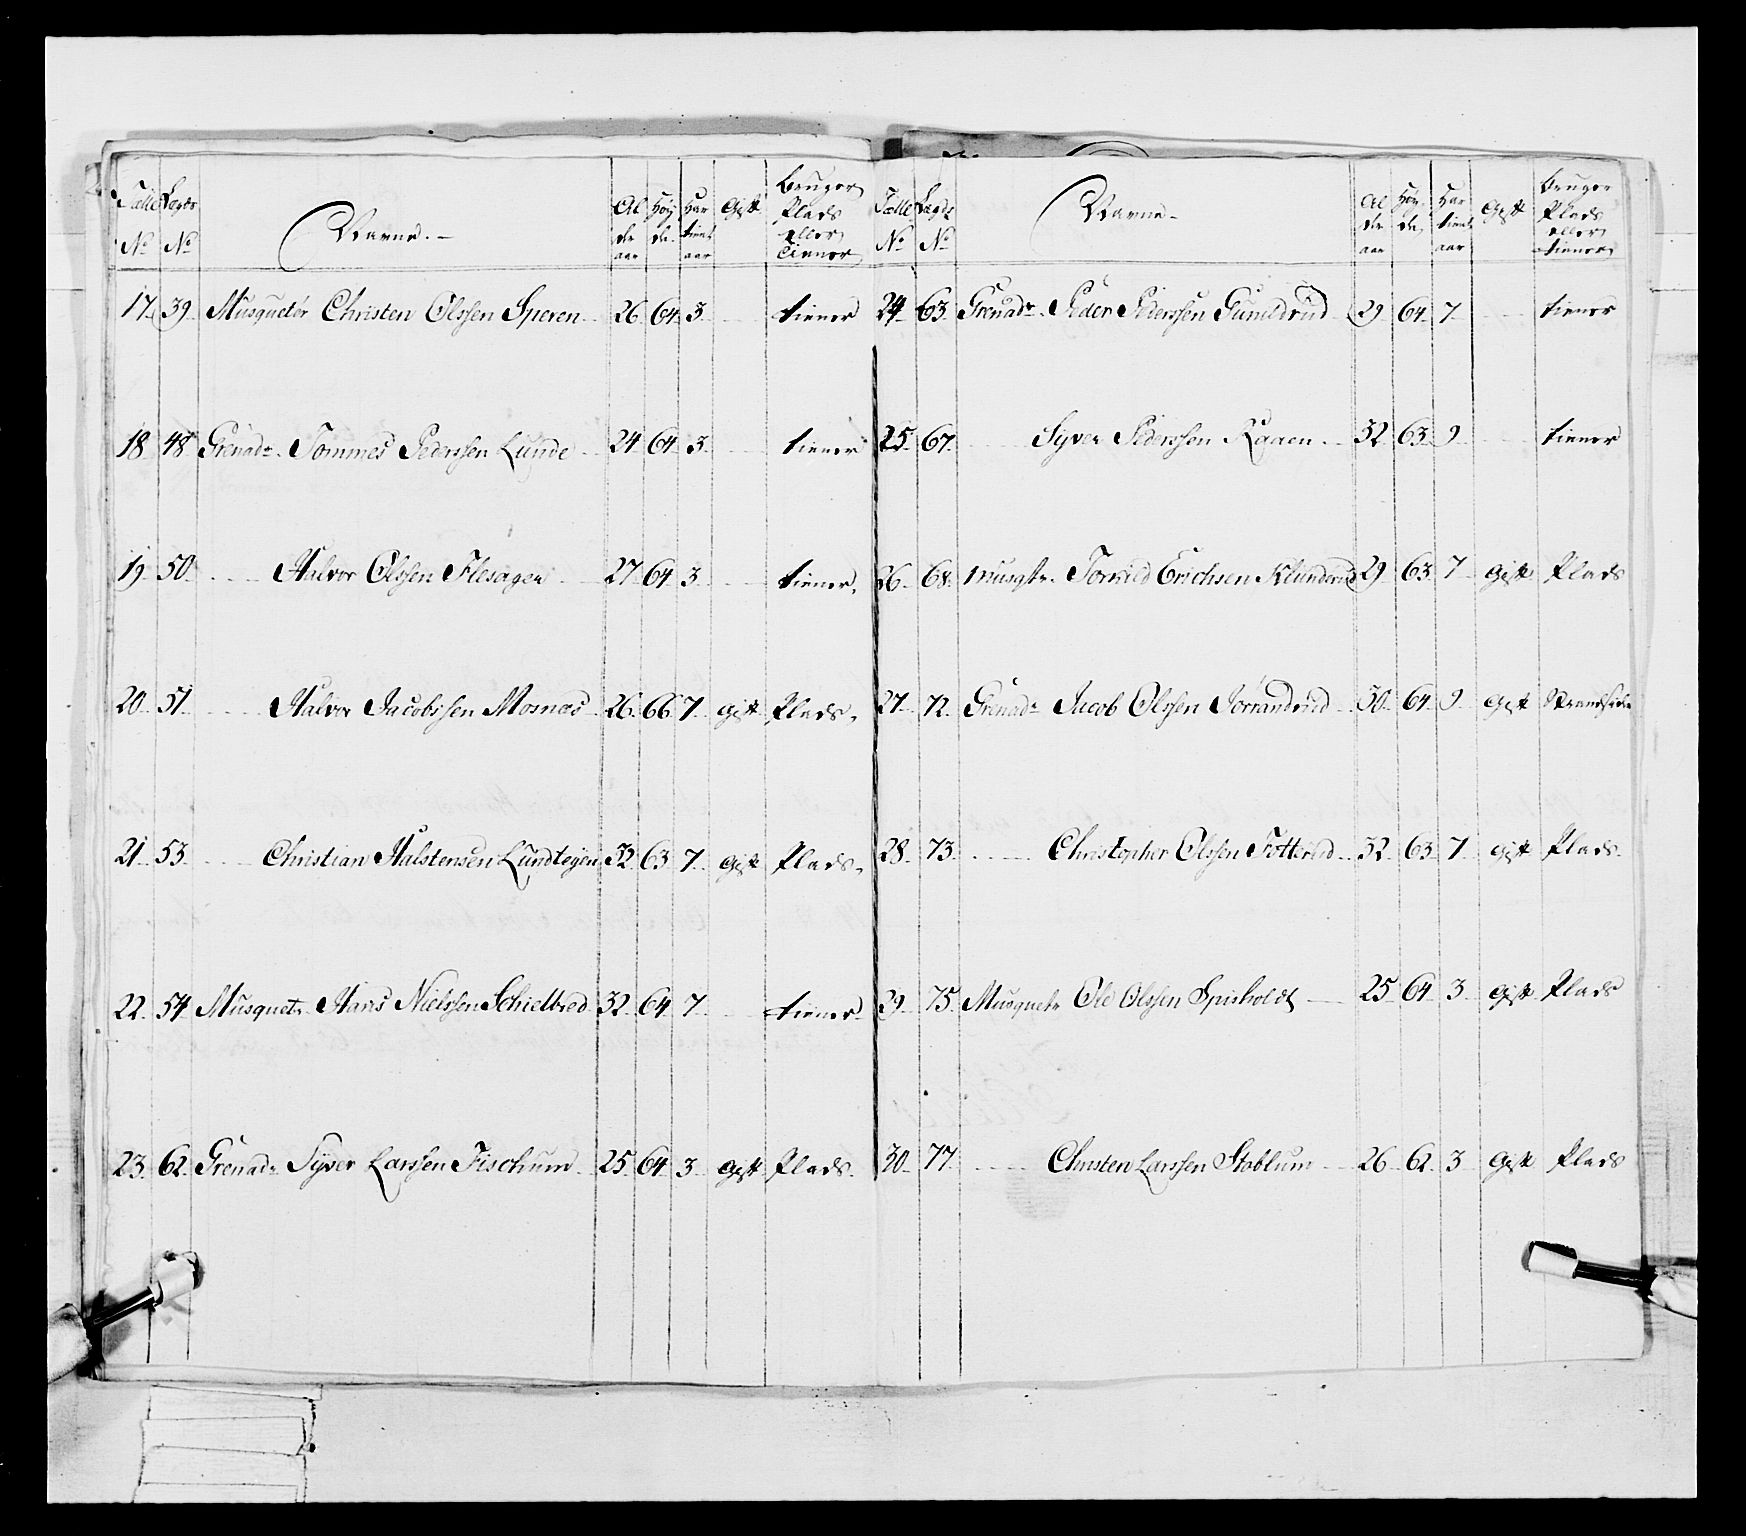 Talle No Lægds No Navne. Al der aar Høy de. Har tient aar Gift Bruger Plads eller tiener
17. 39. Musquetér Christen Olssen Speren 26. 64. 3. tiener
18. 48. Grenadr. Tommes Pederssen Lunde 24. 64. 3. tiener
19. 50. Halvor Olssen Flesager 27. 64. 3. tiener.
20. 51. Halvor Jacobssen Mosnæs 26. 66. 7. gift Plads.
21. 53. Christian Halstensen Lundtegen 32. 63. 7. gift Plads.
22. 54. Musquetr. Hans Nielssen Schielbred 32. 64. 7. tiener.
23. 62. Grenadr. Syver Larssen Fischum 25. 64. 3. gift Plads.
Talle No Lægds No Navne Al der aar Høy de Har tient aar Gift Bruger Plads eller tiener
24. 63. Grenadr. Peder Pederssen Gunildrud 29 64. 7. tiener
25. 67. Syver Pederssen Kaaen 32 63. 9 tiener
26. 68. Musqtr. Torkild Erichsen Klunderud 29 63. 7 gift Plads
27. 72. Grenadr. Jacob Olssen Jørrandrud 30. 64. 9 gift Strandsider
28. 73. Christopher Olssen Totterud 32 63. 7 gift Plads.
29. 75. Musquetr Ole Olssen Spisholdt 25 64. 3 gift Plads
30. 77. Christen Larssen Stablum 26. 62. 3 gift Plads